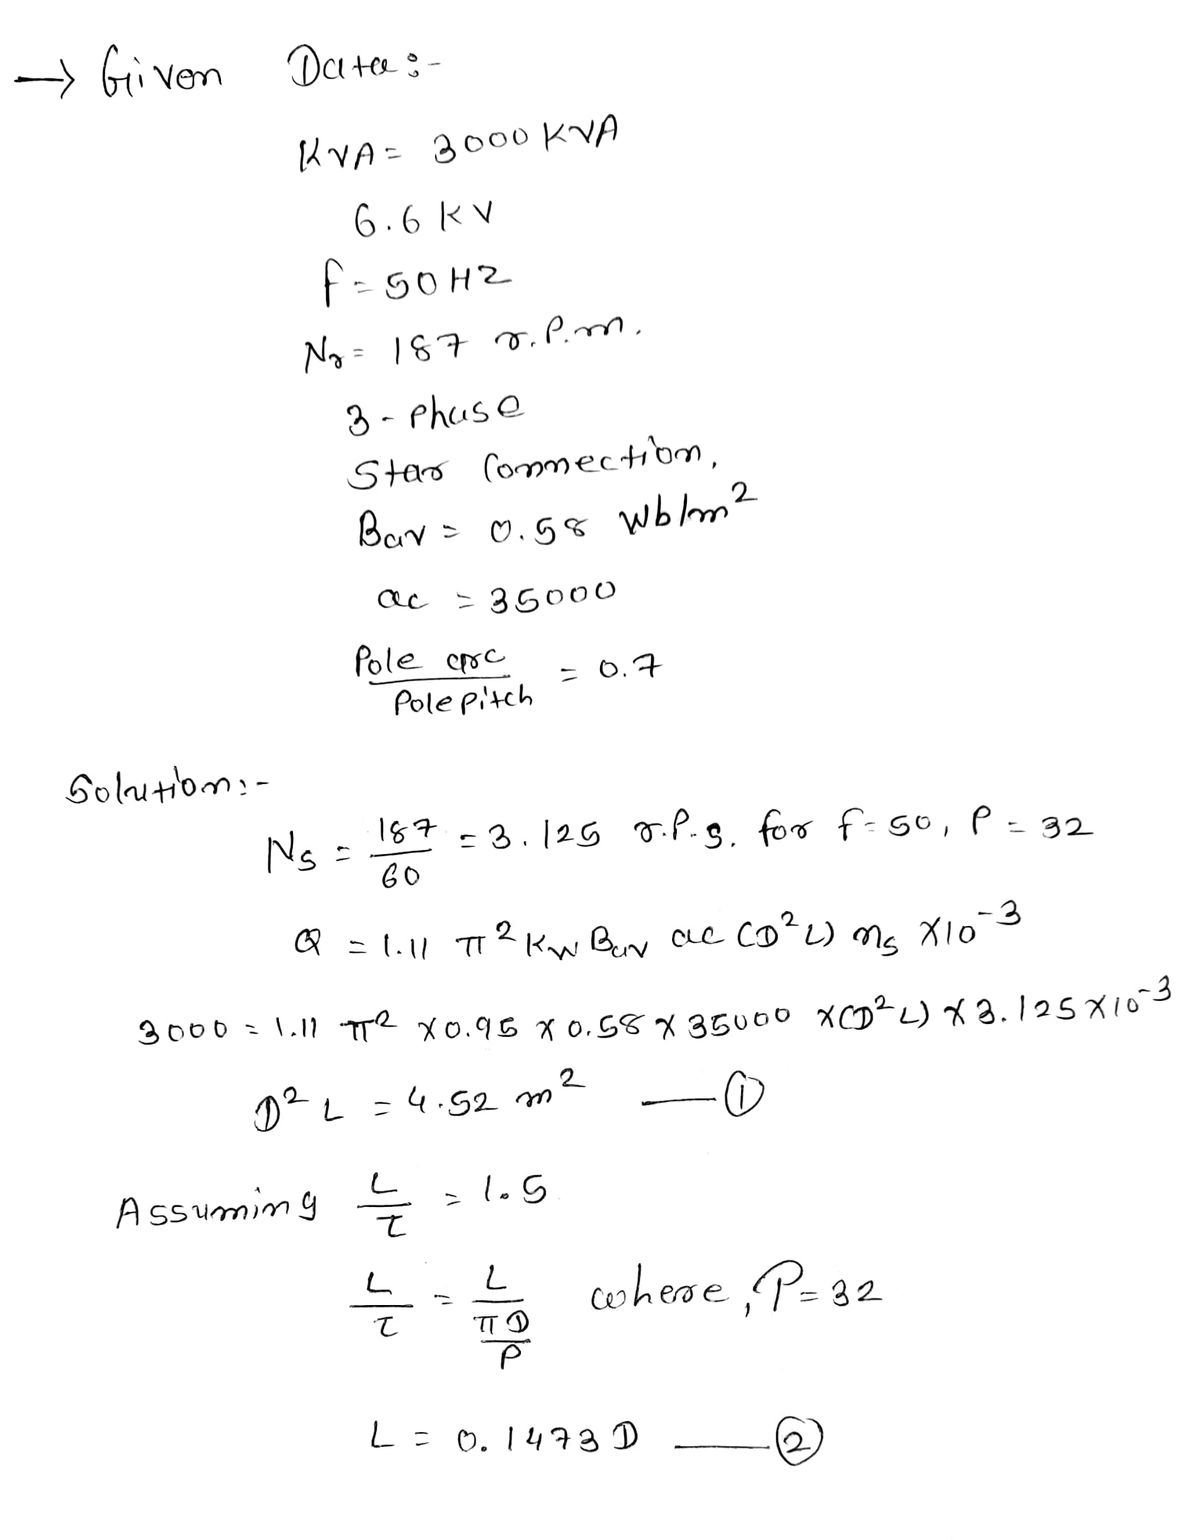 → Given Data:-
KVA = 3000 KVA
6.6 KV
f = 50 HZ
Nr = 187 r.P.m.
3 - Phase
Star Connection,
Bav = 0.58 Wb/m²
ac = 35000
Pole arc / Pole pitch = 0.7
Solution:-
Ns = 187/60 = 3.125 r.P.s. for f = 50, P = 32
Q = 1.11 π² Kw Bav ac (D²L) ns X10⁻³
3000 = 1.11 π² X 0.95 X 0.58 X 35000 X(D²L) X 3.125 X10⁻³
D²L = 4.52 m² —①
Assuming L/τ = 1.5
L/τ = L/(πD/P) where, P = 32
L = 0.1473 D —②